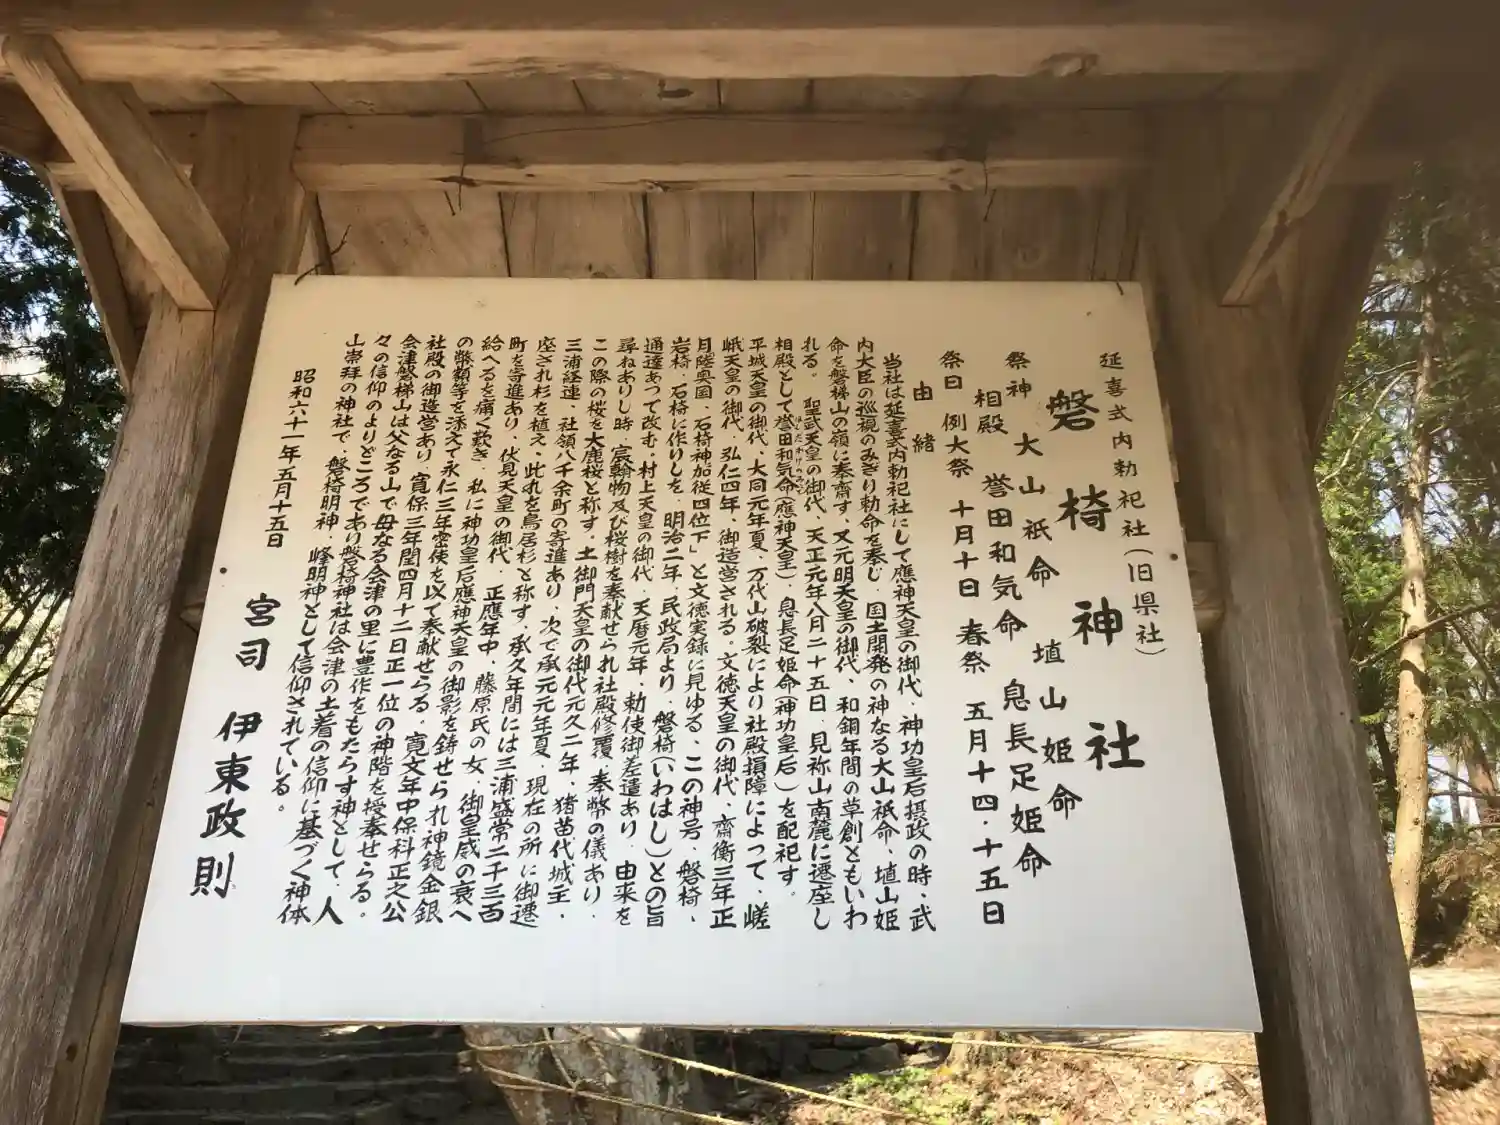 延喜式内勅祀社(旧県社)
磐椅神社
祭神 大山祇命 埴山姫命
相殿 誉田和気命 息長足姫命
祭日 例大祭 十月十日 春祭 五月十四・十五日
由緒
当社は延喜式内勅祀社にして應神天皇の御代、神功皇后摂政の時、武
内大臣の巡視のみぎり勅命を奉じ、国土開発の神なる大山祇命、埴山姫
命を磐梯山の嶺に奉齋す、又元明天皇の御代、和銅年間の草創ともいわ
れる。 聖武天皇の御代、天正元年八月二十五日、見祢山南麓に遷座し
相殿として誉田和気命(應神天皇)、息長足姫命(神功皇后)を配祀す。
平城天皇の御代、大同元年夏、万代山破裂により社殿損障によって、嵯
峨天皇の御代、弘仁四年、御造営される。文徳天皇の御代、齋衡三年正
月陸奥国、石椅神加従四位下」と文徳実録に見ゆる、この神号、磐椅、
岩椅、石椅に作りしを、明治二年、民政局より、磐椅(いわはし)との旨
通達あつて改む。村上天皇の御代、天暦元年、勅使御差遣あり、由来を
尋ねありし時、宸翰物及び桜樹を奉献せられ社殿修覆、奉幣の儀あり、
この際の桜を大鹿桜と称す。土御門天皇の御代元久二年、猪苗代城主、
三浦経連、社領八千余町の寄進あり、次で承元元年夏、現在の所に御遷
座され杉を植え、此れを鳥居杉と称す、承久年間には三浦盛常二千三百
町を寄進あり、伏見天皇の御代、正應年中、藤原氏の女、御皇威の衰へ
給へるを痛く歎き、私に神功皇后應神天皇の御影を鋳せられ神鏡金銀
の幣類等を添えて永仁三年霊使を以て奉献せらる。寛文年中保科正之公
社殿の御造営あり、寛保三年閏四月十二日正一位の神階を授奉せらる。
会津磐梯山は父なる山で母なる会津の里に豊作をもたらす神として、人
々の信仰のよりどころであり磐椅神社は会津の土着の信仰に基づく神体
山崇拝の神社で、磐椅明神、峰明神として信仰されている。
昭和六十一年五月十五日
宮司 伊東政則